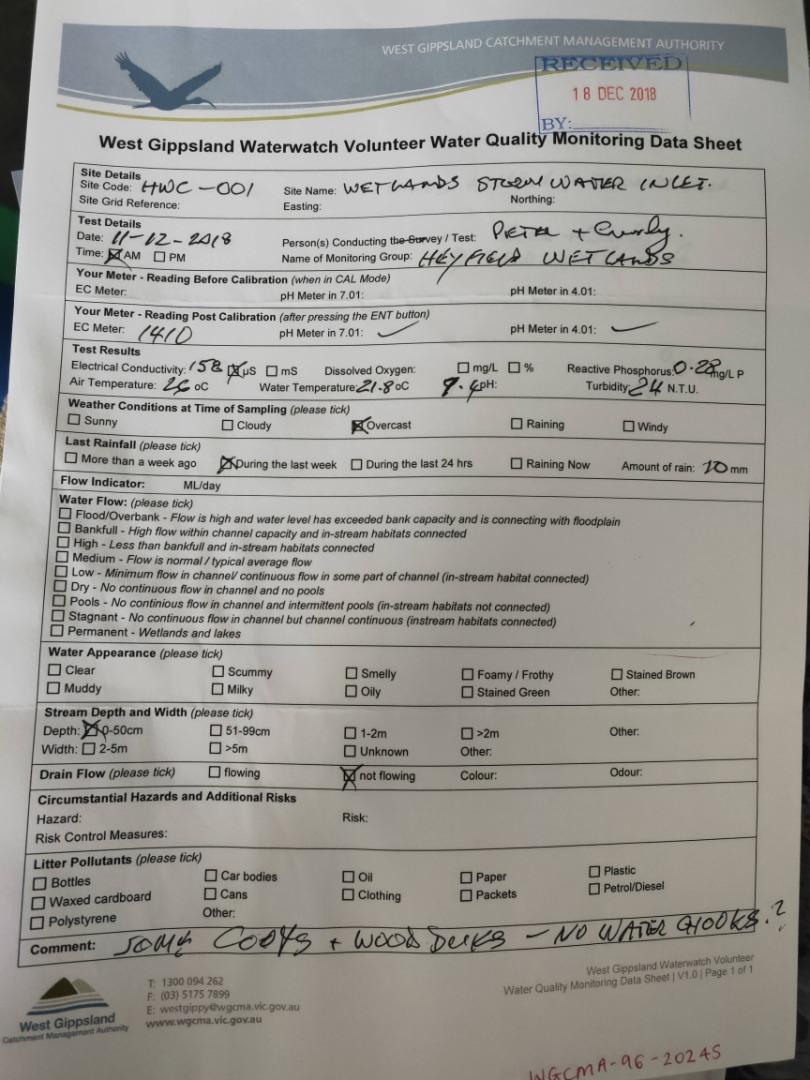 WEST GIPPSLAND CATCHMENT MANAGEMENT AUTHORITY
RECEIVED
18 DEC 2018
BY:
West Gippsland Waterwatch Volunteer Water Quality Monitoring Data Sheet
Site Details
Site Code: HWC-001 Site Name: WETLANDS STORM WATER INLET.
Site Grid Reference: Easting: Northing:
Test Details
Date: 11-12-2018 Person(s) Conducting the Survey / Test: PETER +
Time: ☒ AM ☐ PM Name of Monitoring Group: HEYFIELD WETLANDS
Your Meter - Reading Before Calibration (when in CAL Mode)
EC Meter: pH Meter in 7.01: pH Meter in 4.01:
Your Meter - Reading Post Calibration (after pressing the ENT button)
EC Meter: 1410 pH Meter in 7.01: ✓ pH Meter in 4.01: ✓
Test Results
Electrical Conductivity: 158 ☒ µS ☐ mS Dissolved Oxygen: ☐ mg/L ☐ % Reactive Phosphorus: 0.28 mg/L P
Air Temperature: 26 oC Water Temperature: 21.8 oC pH: Turbidity: 24 N.T.U.
Weather Conditions at Time of Sampling (please tick)
☐ Sunny ☐ Cloudy ☒ Overcast ☐ Raining ☐ Windy
Last Rainfall (please tick)
☐ More than a week ago ☒ During the last week ☐ During the last 24 hrs ☐ Raining Now Amount of rain: 20 mm
Flow Indicator: ML/day
Water Flow: (please tick)
☐ Flood/Overbank - Flow is high and water level has exceeded bank capacity and is connecting with floodplain
☐ Bankfull - High flow within channel capacity and in-stream habitats connected
☐ High - Less than bankfull and in-stream habitats connected
☐ Medium - Flow is normal / typical average flow
☐ Low - Minimum flow in channel/ continuous flow in some part of channel (in-stream habitat connected)
☐ Dry - No continuous flow in channel and no pools
☐ Pools - No continious flow in channel and intermittent pools (in-stream habitats not connected)
☐ Stagnant - No continuous flow in channel but channel continuous (instream habitats connected)
☐ Permanent - Wetlands and lakes
Water Appearance (please tick)
☐ Clear ☐ Scummy ☐ Smelly ☐ Foamy / Frothy ☐ Stained Brown
☐ Muddy ☐ Milky ☐ Oily ☐ Stained Green Other:
Stream Depth and Width (please tick)
Depth: ☒ 0-50cm ☐ 51-99cm ☐ 1-2m ☐ >2m Other:
Width: ☐ 2-5m ☐ >5m ☐ Unknown Other:
Drain Flow (please tick) ☐ flowing ☒ not flowing Colour: Odour:
Circumstantial Hazards and Additional Risks
Hazard: Risk:
Risk Control Measures:
Litter Pollutants (please tick)
☐ Bottles ☐ Car bodies ☐ Oil ☐ Paper ☐ Plastic
☐ Waxed cardboard ☐ Cans ☐ Clothing ☐ Packets ☐ Petrol/Diesel
☐ Polystyrene Other:
Comment: SOME COOTS + WOOD DUCKS - NO WATER CHOOKS.?
West Gippsland
Catchment Management Authority
T: 1300 094 262
F: (03) 5175 7899
E: westgippy@wgcma.vic.gov.au
www.wgcma.vic.gov.au
West Gippsland Waterwatch Volunteer
Water Quality Monitoring Data Sheet | V1.0 | Page 1 of 1
WGCMA-96-20245